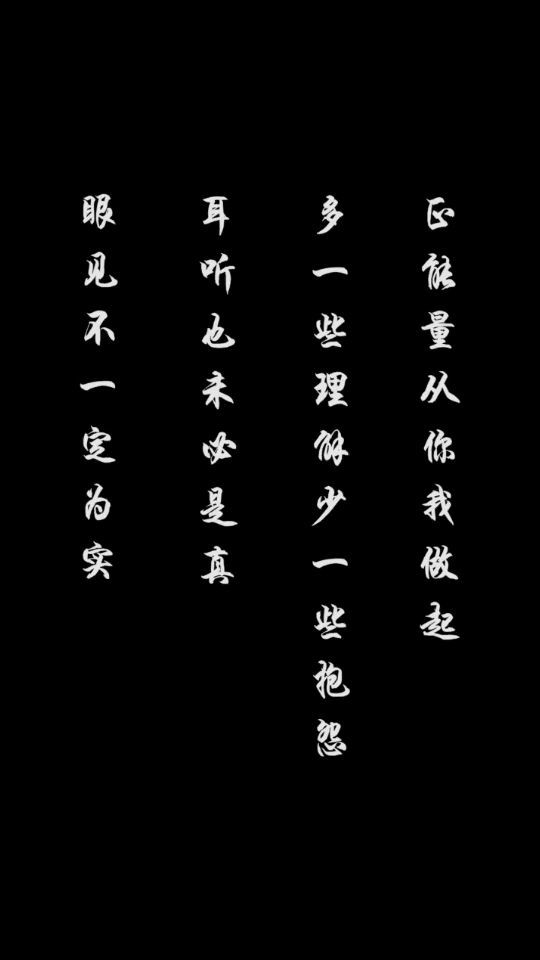 眼见不一定为实
耳听也未必是真
多一些理解少一些抱怨
正能量从你我做起